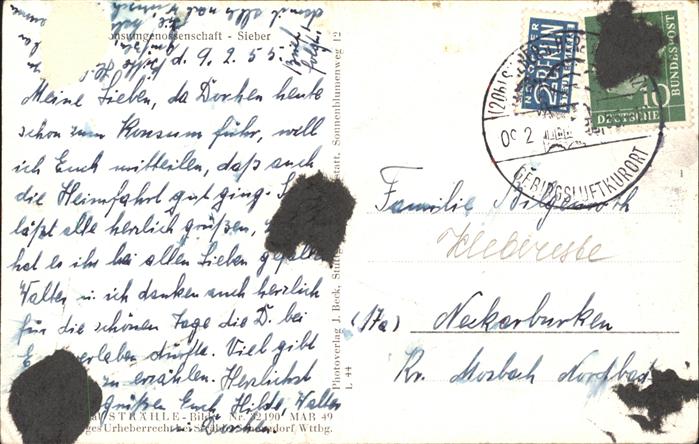 onsumgenossenschaft - Sieber
d. 9.2.55.
Brief
folgt.
Meine Lieben, da Dorchen heute
schon zum Konsum führ, will
ich Euch mitteilen, daß auch
die Heimfahrt gut ging.
läßt alle herzlich grüßen,
hat es ihr bei allen Lieben gefallen
Walter u. ich danken auch herzlich
für die schönen Tage die D. bei
verleben durfte. Viel gibt
zu erzählen. Herzlichst
grüßen Euch Hilde, Walter
STRÄHLE - Bild Nr. 32190 MAR 49
ges Urheberrecht bei Schorndorf Wttbg.
Photoverlag J. Beck, Stuttgart-Cannstatt, Sonnenblumenweg 12
L 44
NOTOPFER
2 BERLIN
STEUERMARKE
DEUTSCHE
BUNDESPOST
10
(20b)
09. 2
GEBIRGSLUFTKURORT
Familie
Klebereste
(17a) Neckarburken
Kr. Mosbach Nordbad